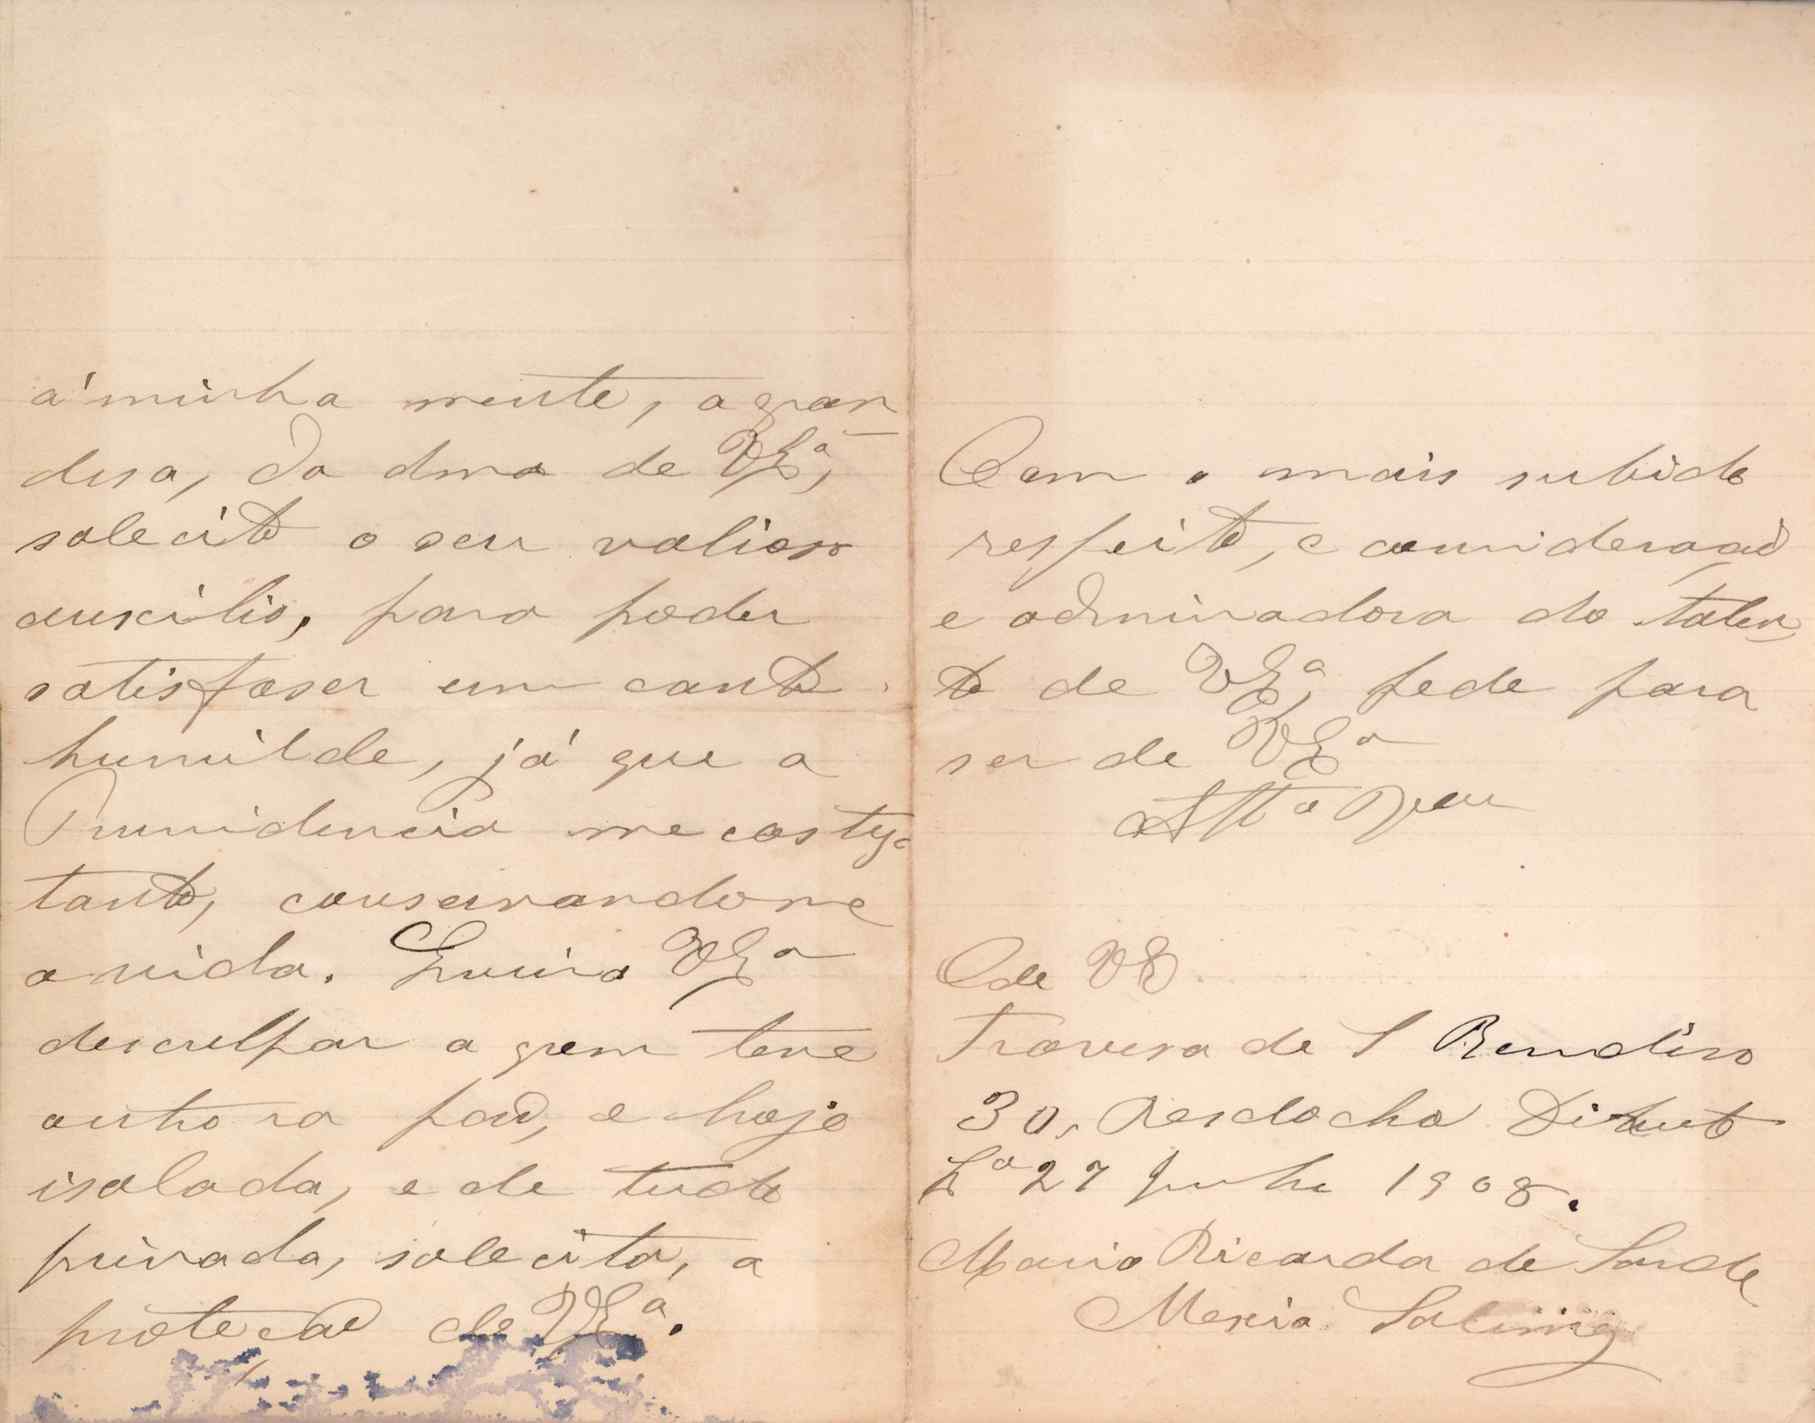 á minha mente, a gran
desa, da alma de VExª,
solecito o seu valioso
auxilio, para poder
satisfaser um canto
humilde, já que a
Providencia me castiga
tanto, conservandome
a vida. Queira VExª
desculpar a quem teve
outrora pao, e hoje
isolada, e de tudo
privada, solecita, a
proteção de VExª.
Com o mais subido
respeito, e consideração
e admiradora do talen
to de VExª, pede para
ser de VExª
Attª Ven
C de VE
Travesa de S
30, Resdocha Direito
Lª 27 Junho 1908.
Maria Ricarda de Sande
Mexia